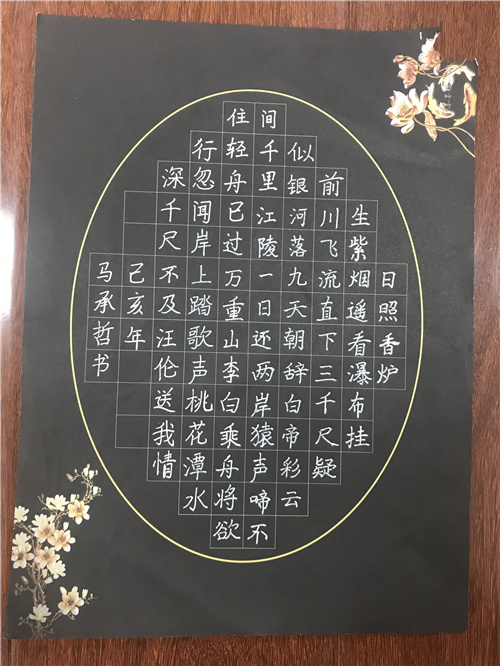 日照香炉
生紫烟遥看瀑布挂
前川飞流直下三千尺疑
似银河落九天朝辞白帝彩云
间千里江陵一日还两岸猿声啼不
住轻舟已过万重山李白乘舟将欲
行忽闻岸上踏歌声桃花潭水
深千尺不及汪伦送我情
己亥年
马承哲书